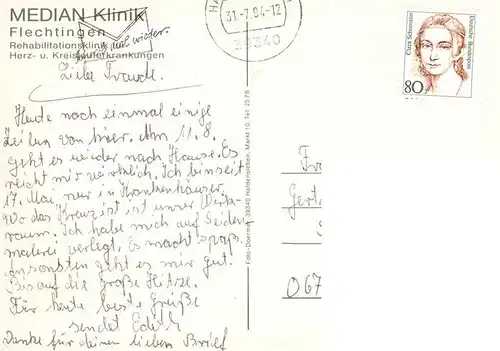 MEDIAN Klinik
Flechtingen
Rehabilitationsklinik
Herz- u. Kreislauferkrankungen
wieder.
31.-7.94-12
39340
Clara Schumann
Deutsche Bundespost
80
Liebe Traude.
Heute noch einmal einige
Zeilen von hier. Am 11.8.
geht es wieder nach Hause. Es
reicht mir wirklich. Ich bin seit
17. Mai nur in Krankenhäuser.
Wo das Kreuz ist ist unser Werk-
raum. Ich habe mich auf Seiden-
malerei verlegt. Es macht spaß.
Ansonsten geht es mir gut.
Bis auf die große Hitze.
Für heute beste Grüße
sendet Edith
Danke für deinen lieben Brief
Foto-Doermer, 39340 Haldensleben, Markt 10, Tel. 25 78
Fra
Gert
067